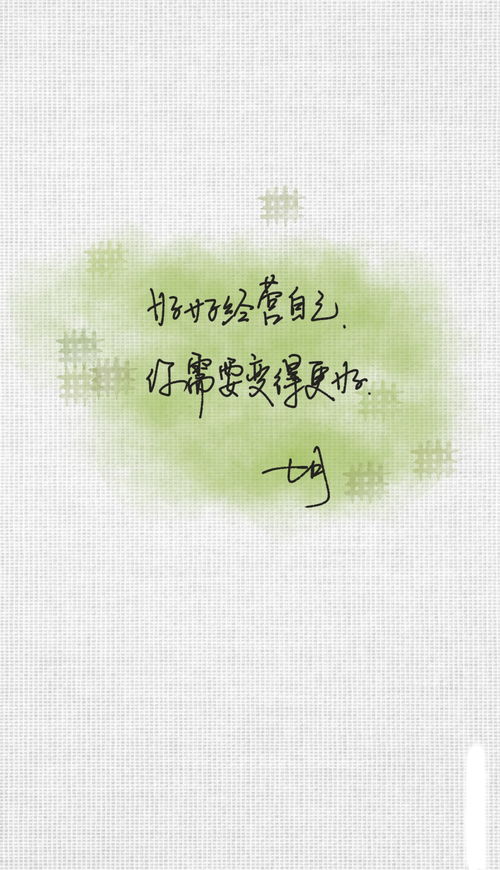 好好经营自己.
你需要变得更好.
七月